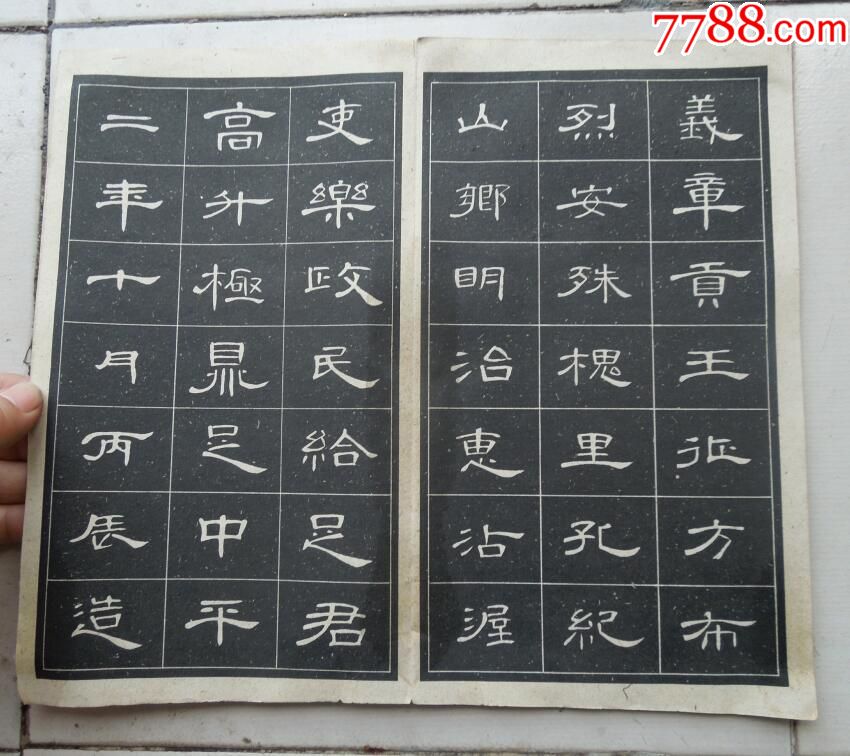 7788.com
義章貢王征方布
烈安殊槐里孔紀
山鄉明治惠沾渥
吏樂政民給足君
高升極鼎足中平
二年十月丙辰造